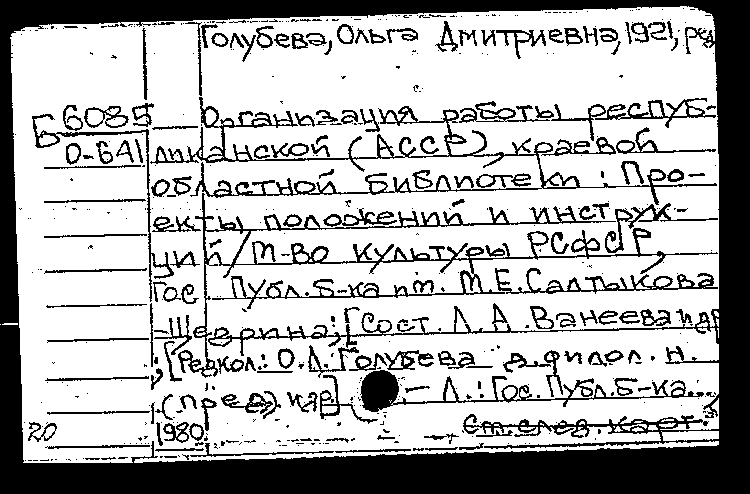 Голубева, Ольга Дмитриевна, 1921, ред
Б 6085 Организация работы респуб-
О-641 ликанской (АССР), краевой
областной библиотеки : Про-
екты положений и инструк-
ций / М-во культуры РСФСР,
Гос Публ. б-ка им. М.Е. Салтыкова
-Щедрина; [Сост. Л.А. Ванеева и др
; [Редкол.: О.Д. Голубева д. филол. н.
(пред.) и др] — Л.: Гос. Публ. б-ка...,
20 1980 См. след. карт.